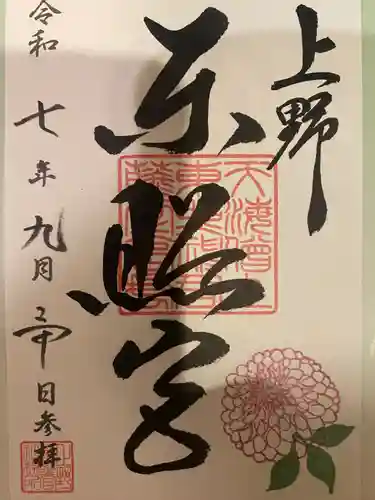 上野
東照宮
令和七年九月二十日参拝